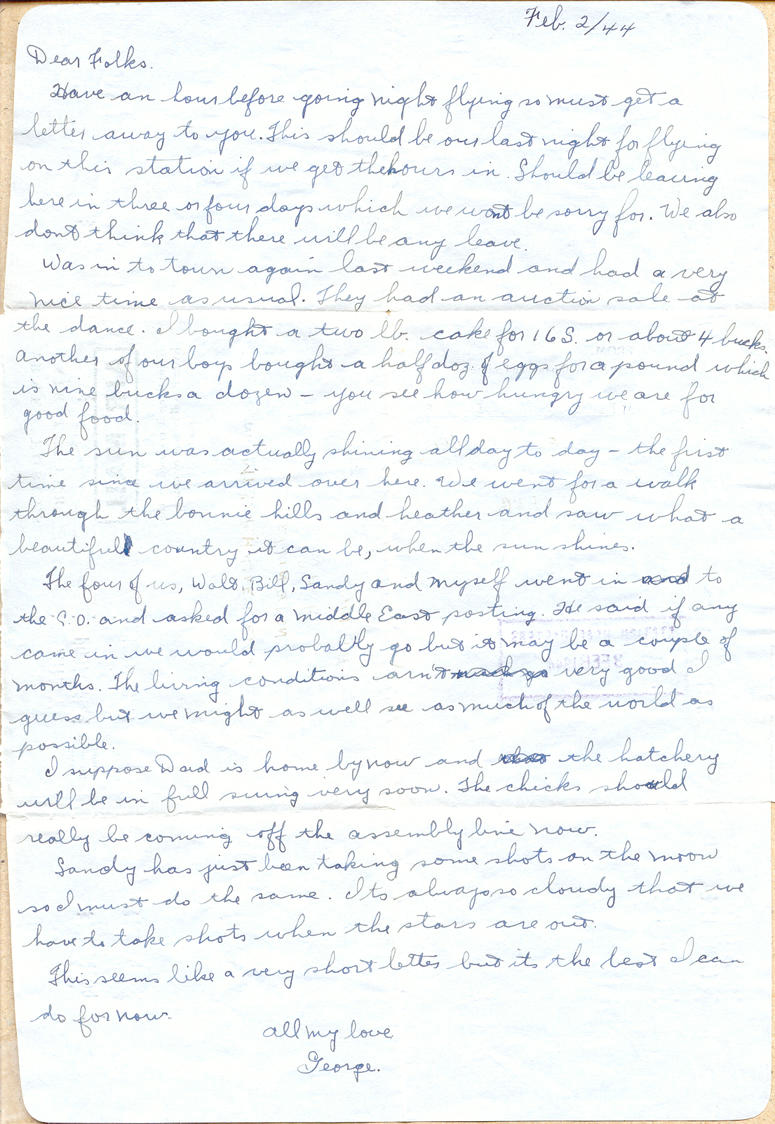 Feb. 2/44
Dear Folks.
Have an hour before going night flying so must get a
letter away to you. This should be our last night for flying
on this station if we get the hours in. Should be leaving
here in three or four days which we wont be sorry for. We also
dont think that there will be any leave.
Was in to town again last weekend and had a very
nice time as usual. They had an auction sale at
the dance. I bought a two lb. cake for 16 S. or about 4 bucks.
Another of our boys bought a half doz. of eggs for a pound which
is nine bucks a dozen - you see how hungry we are for
good food.
The sun was actually shining all day to day - the first
time since we arrived over here. We went for a walk
through the bonnie hills and heather and saw what a
beautiful country it can be, when the sun shines.
The four of us, Walt, Bill, Sandy and myself went in and to
the C.O. and asked for a Middle East posting. He said if any
came in we would probably go but it may be a couple of
months. The living conditions arn't much go very good I
guess but we might as well see as much of the world as
possible.
I suppose Dad is home by now and the hatchery
will be in full swing very soon. The chicks should
really be coming off the assembly line now.
Sandy has just been taking some shots on the moon
so I must do the same. Its always so cloudy that we
have to take shots when the stars are out.
This seems like a very short letter but its the best I can
do for now.
All my love
George.